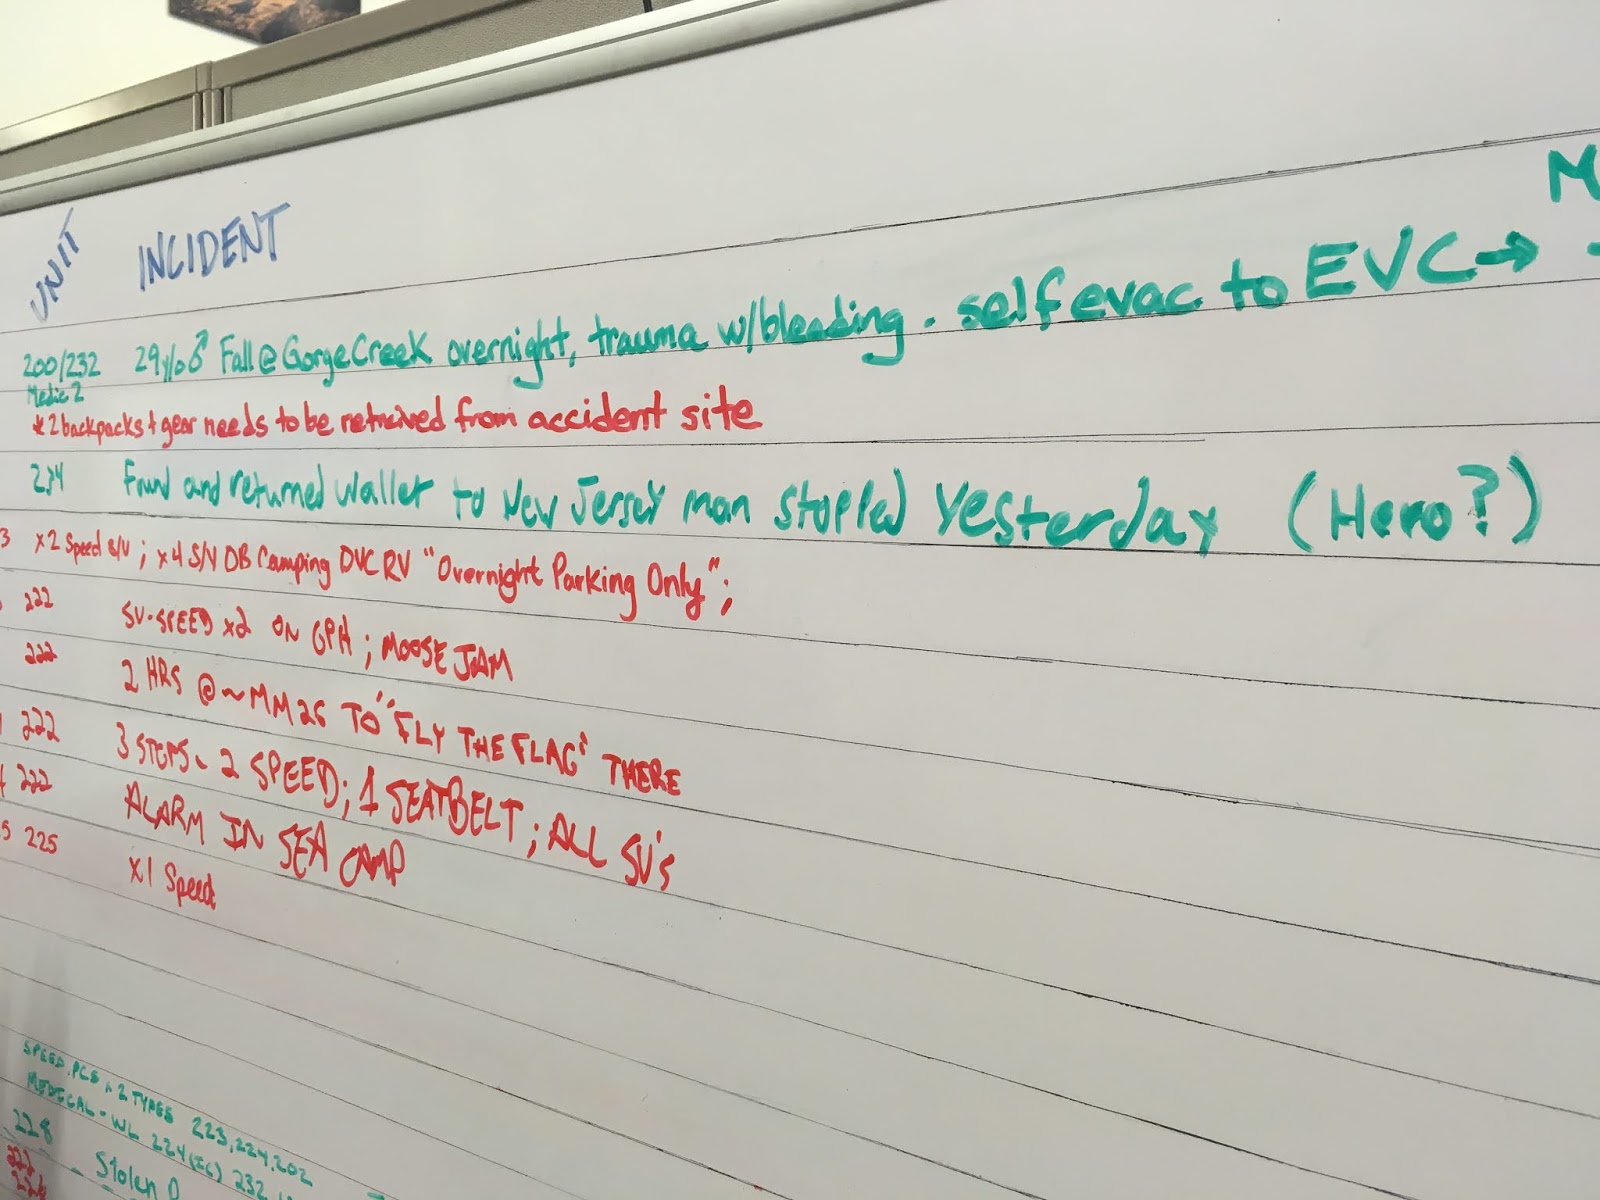 UNIT INCIDENT
M
200/232 29y/o♂ Fall@GorgeCreek overnight, trauma w/bleeding. self evac to EVC→
Medic 2
*2 backpacks + gear needs to be retreived from accident site
234 Found and returned wallet to New Jersey man stopped yesterday (Hero?)
3 x2 Speed S/V; x4 S/V DB Camping DVC RV "Overnight Parking Only";
222 SV-SPEED x2 ON GPH; MOOSE JAM
222 2 HRS @ ~MM26 TO "FLY THE FLAG" THERE
222 3 STOPS ~ 2 SPEED; 1 SEATBELT; ALL SV'S
222 ALARM IN SEA CAMP
5 225 x1 Speed
SPEED, PCS, 2 TYPES 223, 224, 202
MEDICAL - WL 224(IC) 232
228 Stolen
222